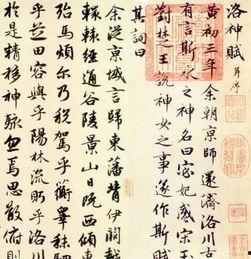 洛神賦 并序
黃初三年余朝京師還濟洛川古
有言斯水之神名曰宓妃感宋玉
對楚王說神女之事遂作斯賦
其詞曰
余從京域言歸東藩背伊闕越
轘轅經通谷陵景山日既西傾車
殆馬煩爾乃稅駕乎蘅皋秣駟
乎芝田容與乎陽林流眄乎洛川
於是精移神駭忽焉思散俯則